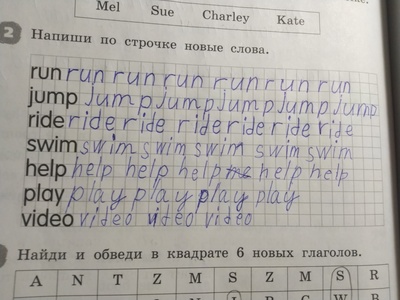 Mel Sue Charley Kate
2 Напиши по строчке новые слова.
run run run run run run run
jump jump jump jump jump jump
ride ride ride ride ride ride ride
swim swim swim swim swim swim
help help help help help help
play play play play play
video video video video
Найди и обведи в квадрате 6 новых глаголов.
A N T Z M S Z M S R